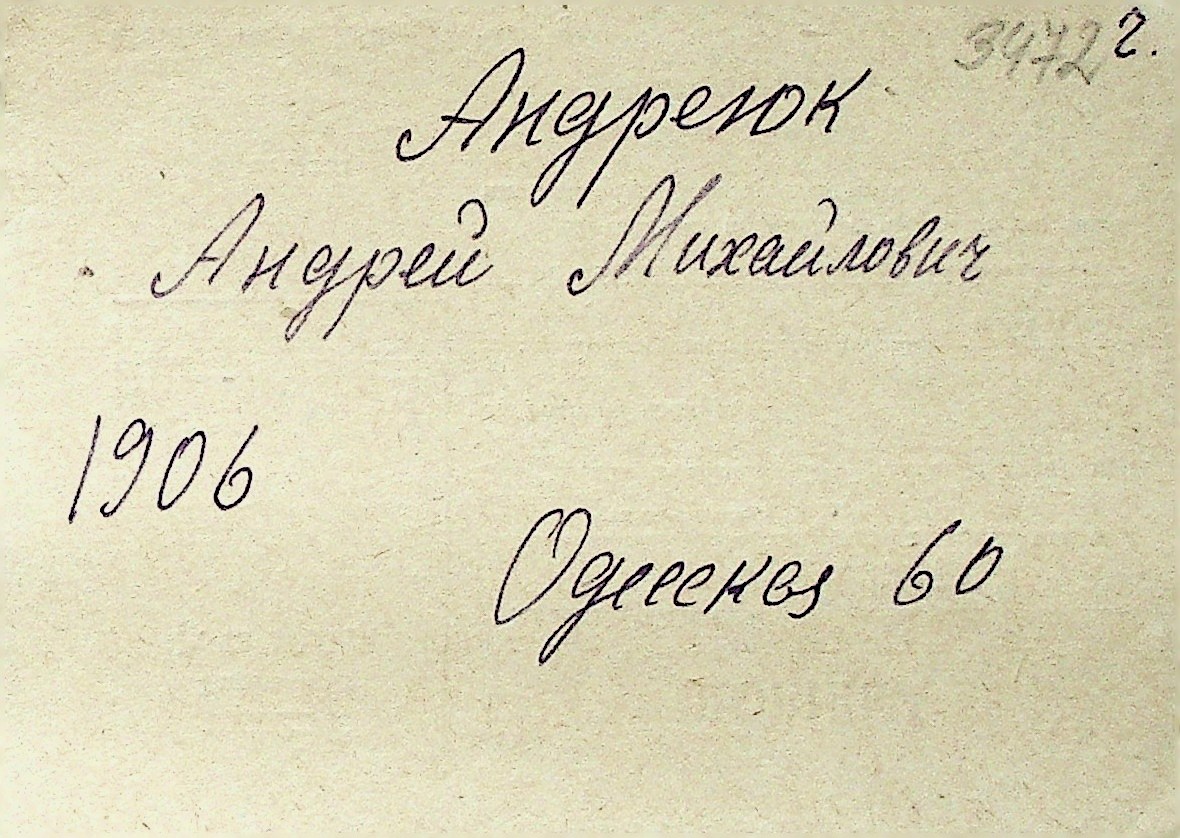 3472 г.
Андреюк
Андрей Михайлович
1906
Одесская 60